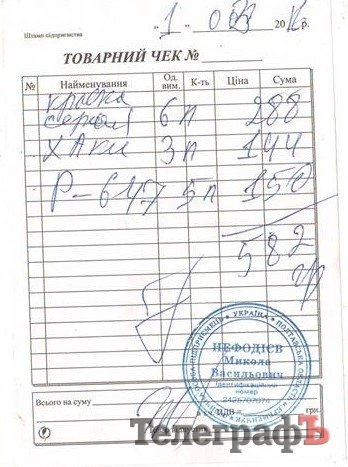 Штамп підприємства
"1" 03 2016 р.
ТОВАРНИЙ ЧЕК №
№ Найменування Од. вим. К-ть Ціна Сума
краска
серая 6 л 288
хаки 3 л 144
Р-647 5 л 150
582
гр
УКРАЇНА ПОЛТАВСЬКА
НЕФОДІЄВ
Микола
Васильович
Ідентифікаційний
номер
2425707074
Всього на суму
ПДВ грн.
ТелеграфЪ